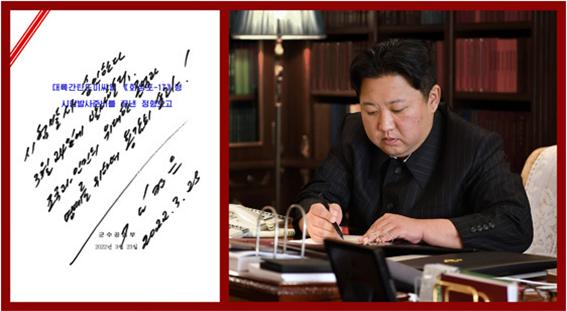 대륙간탄도미싸일 《화성포-17》형
시험발사준비를 끝낸 정형보고
시험발사 승인한다.
3월 24일에 발사한다.
조국과 인민의 위대한 존엄과
명예를 위하여 용감히 쏘라!
김정은
2022. 3. 23
군수공업부
2022년 3월 23일